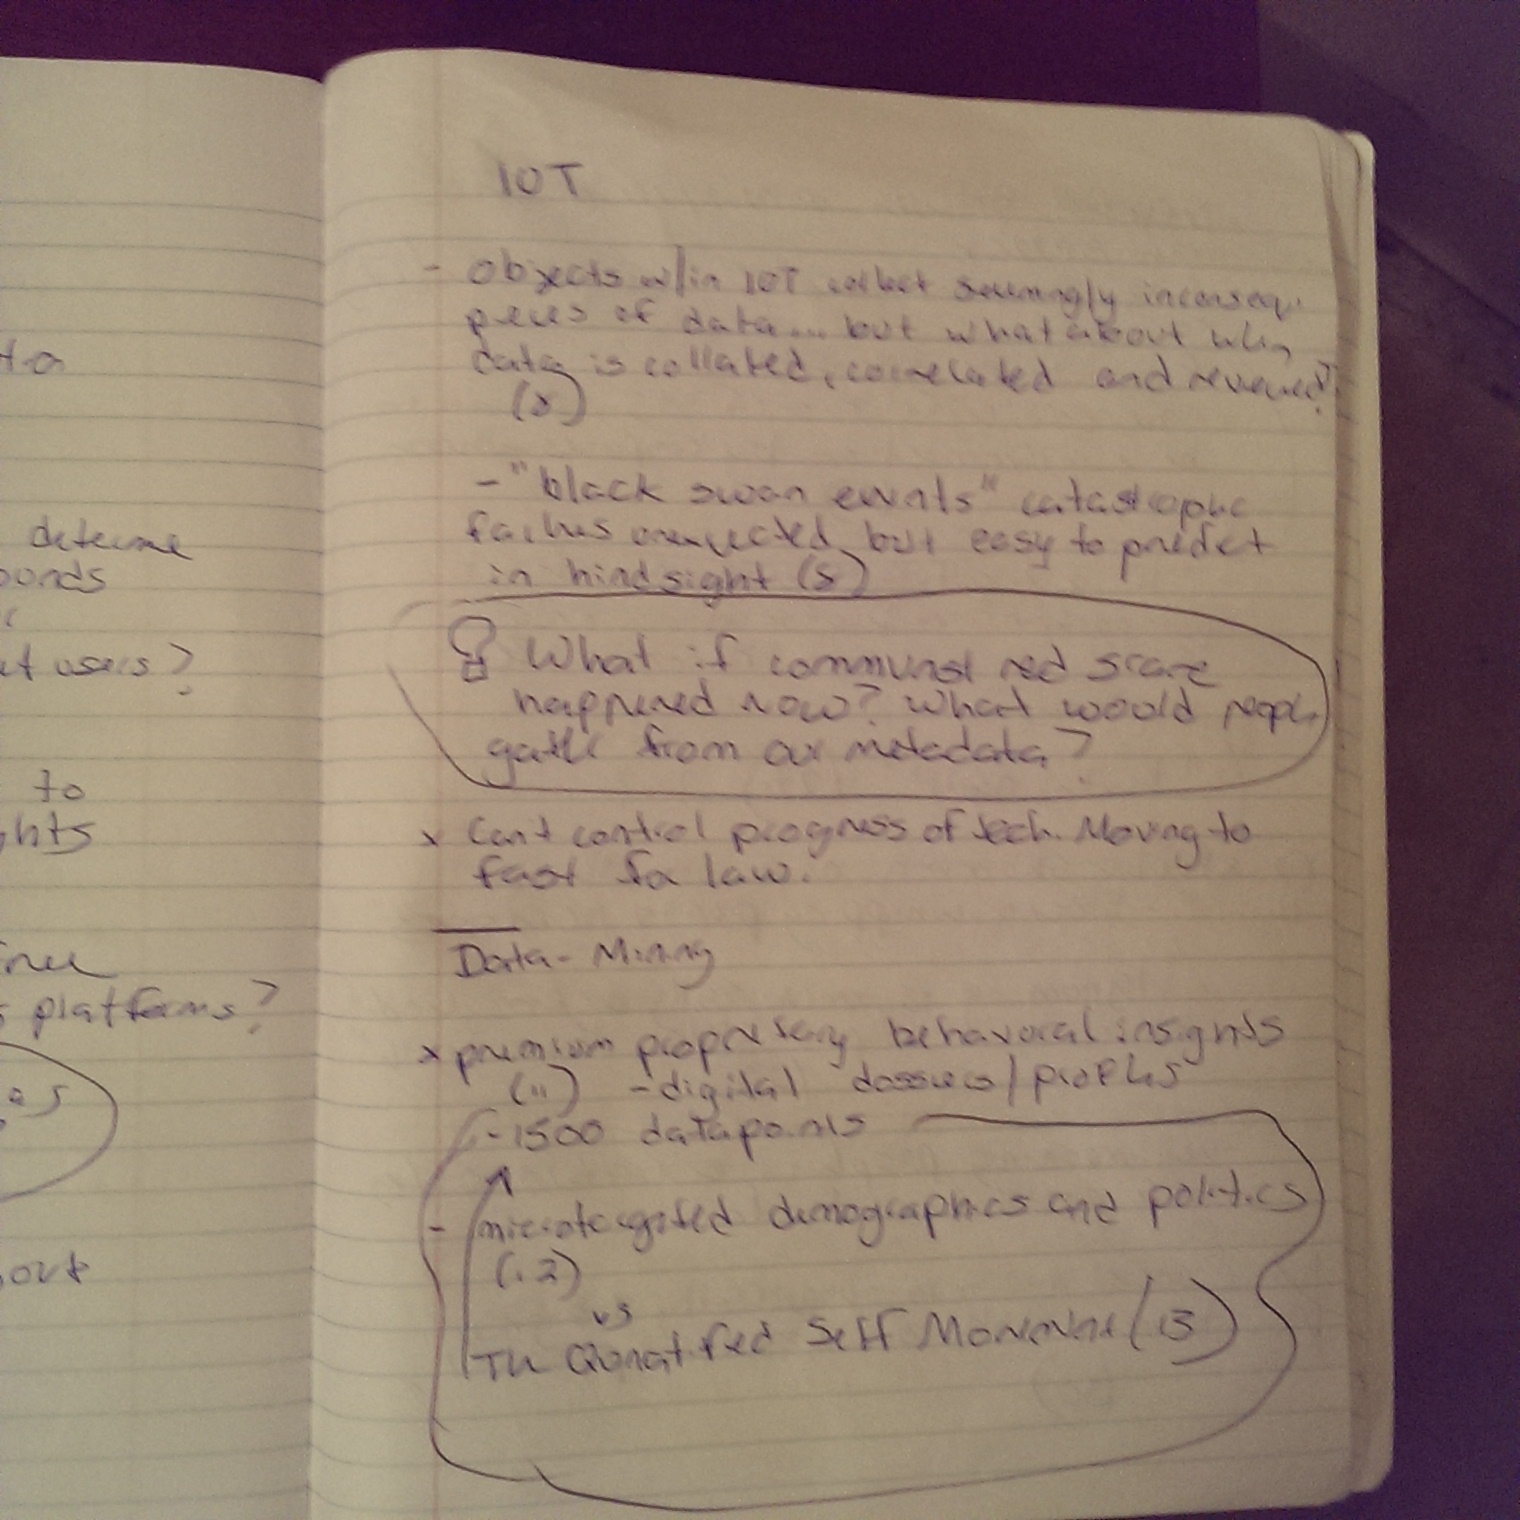 to
determe
ponds
et users?
to
ghts
free
s platforms?
IOT
- Objects w/in IOT collect seemingly inconsequ.
pieces of data... but what about when
data is collated, correlated and reviewed?
- "black swan events" catastrophic
failures unexpected but easy to predict
in hindsight (8)
What if communist red scare
happened now? What would people
gather from our metadata?
x Can't control progress of tech. Moving to
fast for law.
Data-Mining
x premium proprietary behavoral insights
(11) - digital dossiers/profiles
- 1500 datapoints
- microtargeted demographics and politics
(12)
vs
The Quantified Self Movement (13)